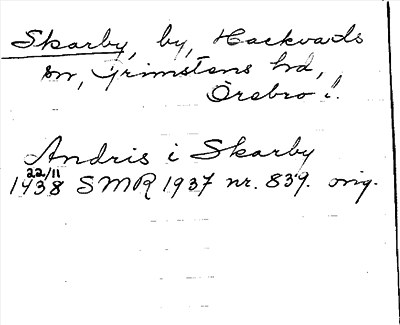 Skarby, by, Hackvads
sn, Grimstens hd,
Örebro l.
Andris i Skarby
22/11
1438 SMR 1937 nr. 839. orig.